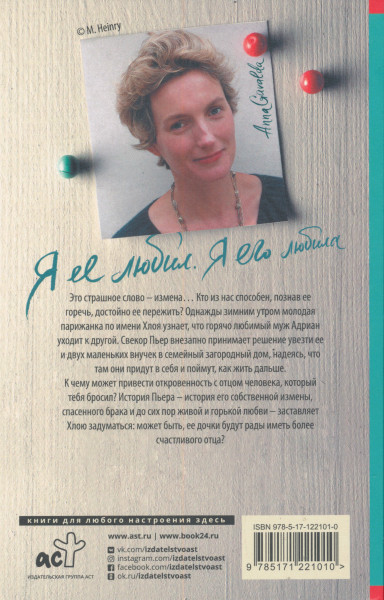 © M. Heinry
Anna Gavalda
Я ее любил. Я его любила
Это страшное слово – измена… Кто из нас способен, познав ее
горечь, достойно ее пережить? Однажды зимним утром молодая
парижанка по имени Хлоя узнает, что горячо любимый муж Адриан
уходит к другой. Свекор Пьер внезапно принимает решение увезти ее
и двух маленьких внучек в семейный загородный дом, надеясь, что
там они придут в себя и поймут, как жить дальше.
К чему может привести откровенность с отцом человека, который
тебя бросил? История Пьера – история его собственной измены,
спасенного брака и до сих пор живой и горькой любви – заставляет
Хлою задуматься: может быть, ее дочки будут рады иметь более
счастливого отца?
книги для любого настроения здесь
аст
ИЗДАТЕЛЬСКАЯ ГРУППА АСТ
www.ast.ru | www.book24.ru
vk.com/izdatelstvoast
instagram.com/izdatelstvoast
facebook.com/izdatelstvoast
ok.ru/izdatelstvoast
ISBN 978-5-17-122101-0
9 785171 221010 >